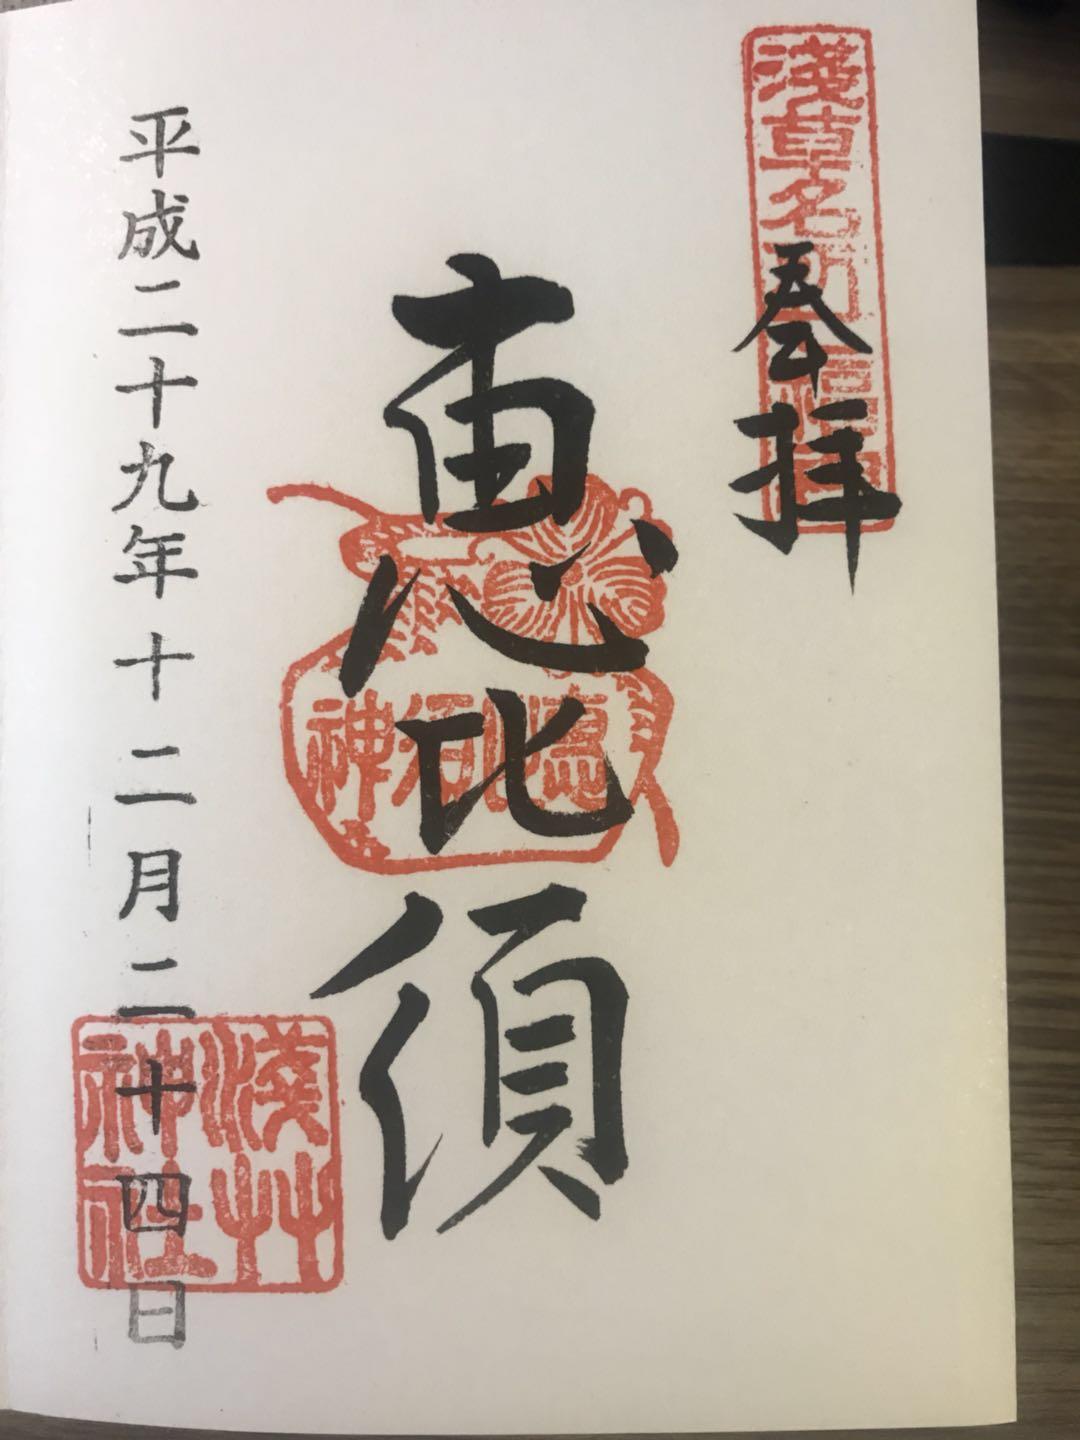 淺草名所七福神
奉拝
恵比須
恵比須神
平成二十九年十二月二十四日
淺艸
神社